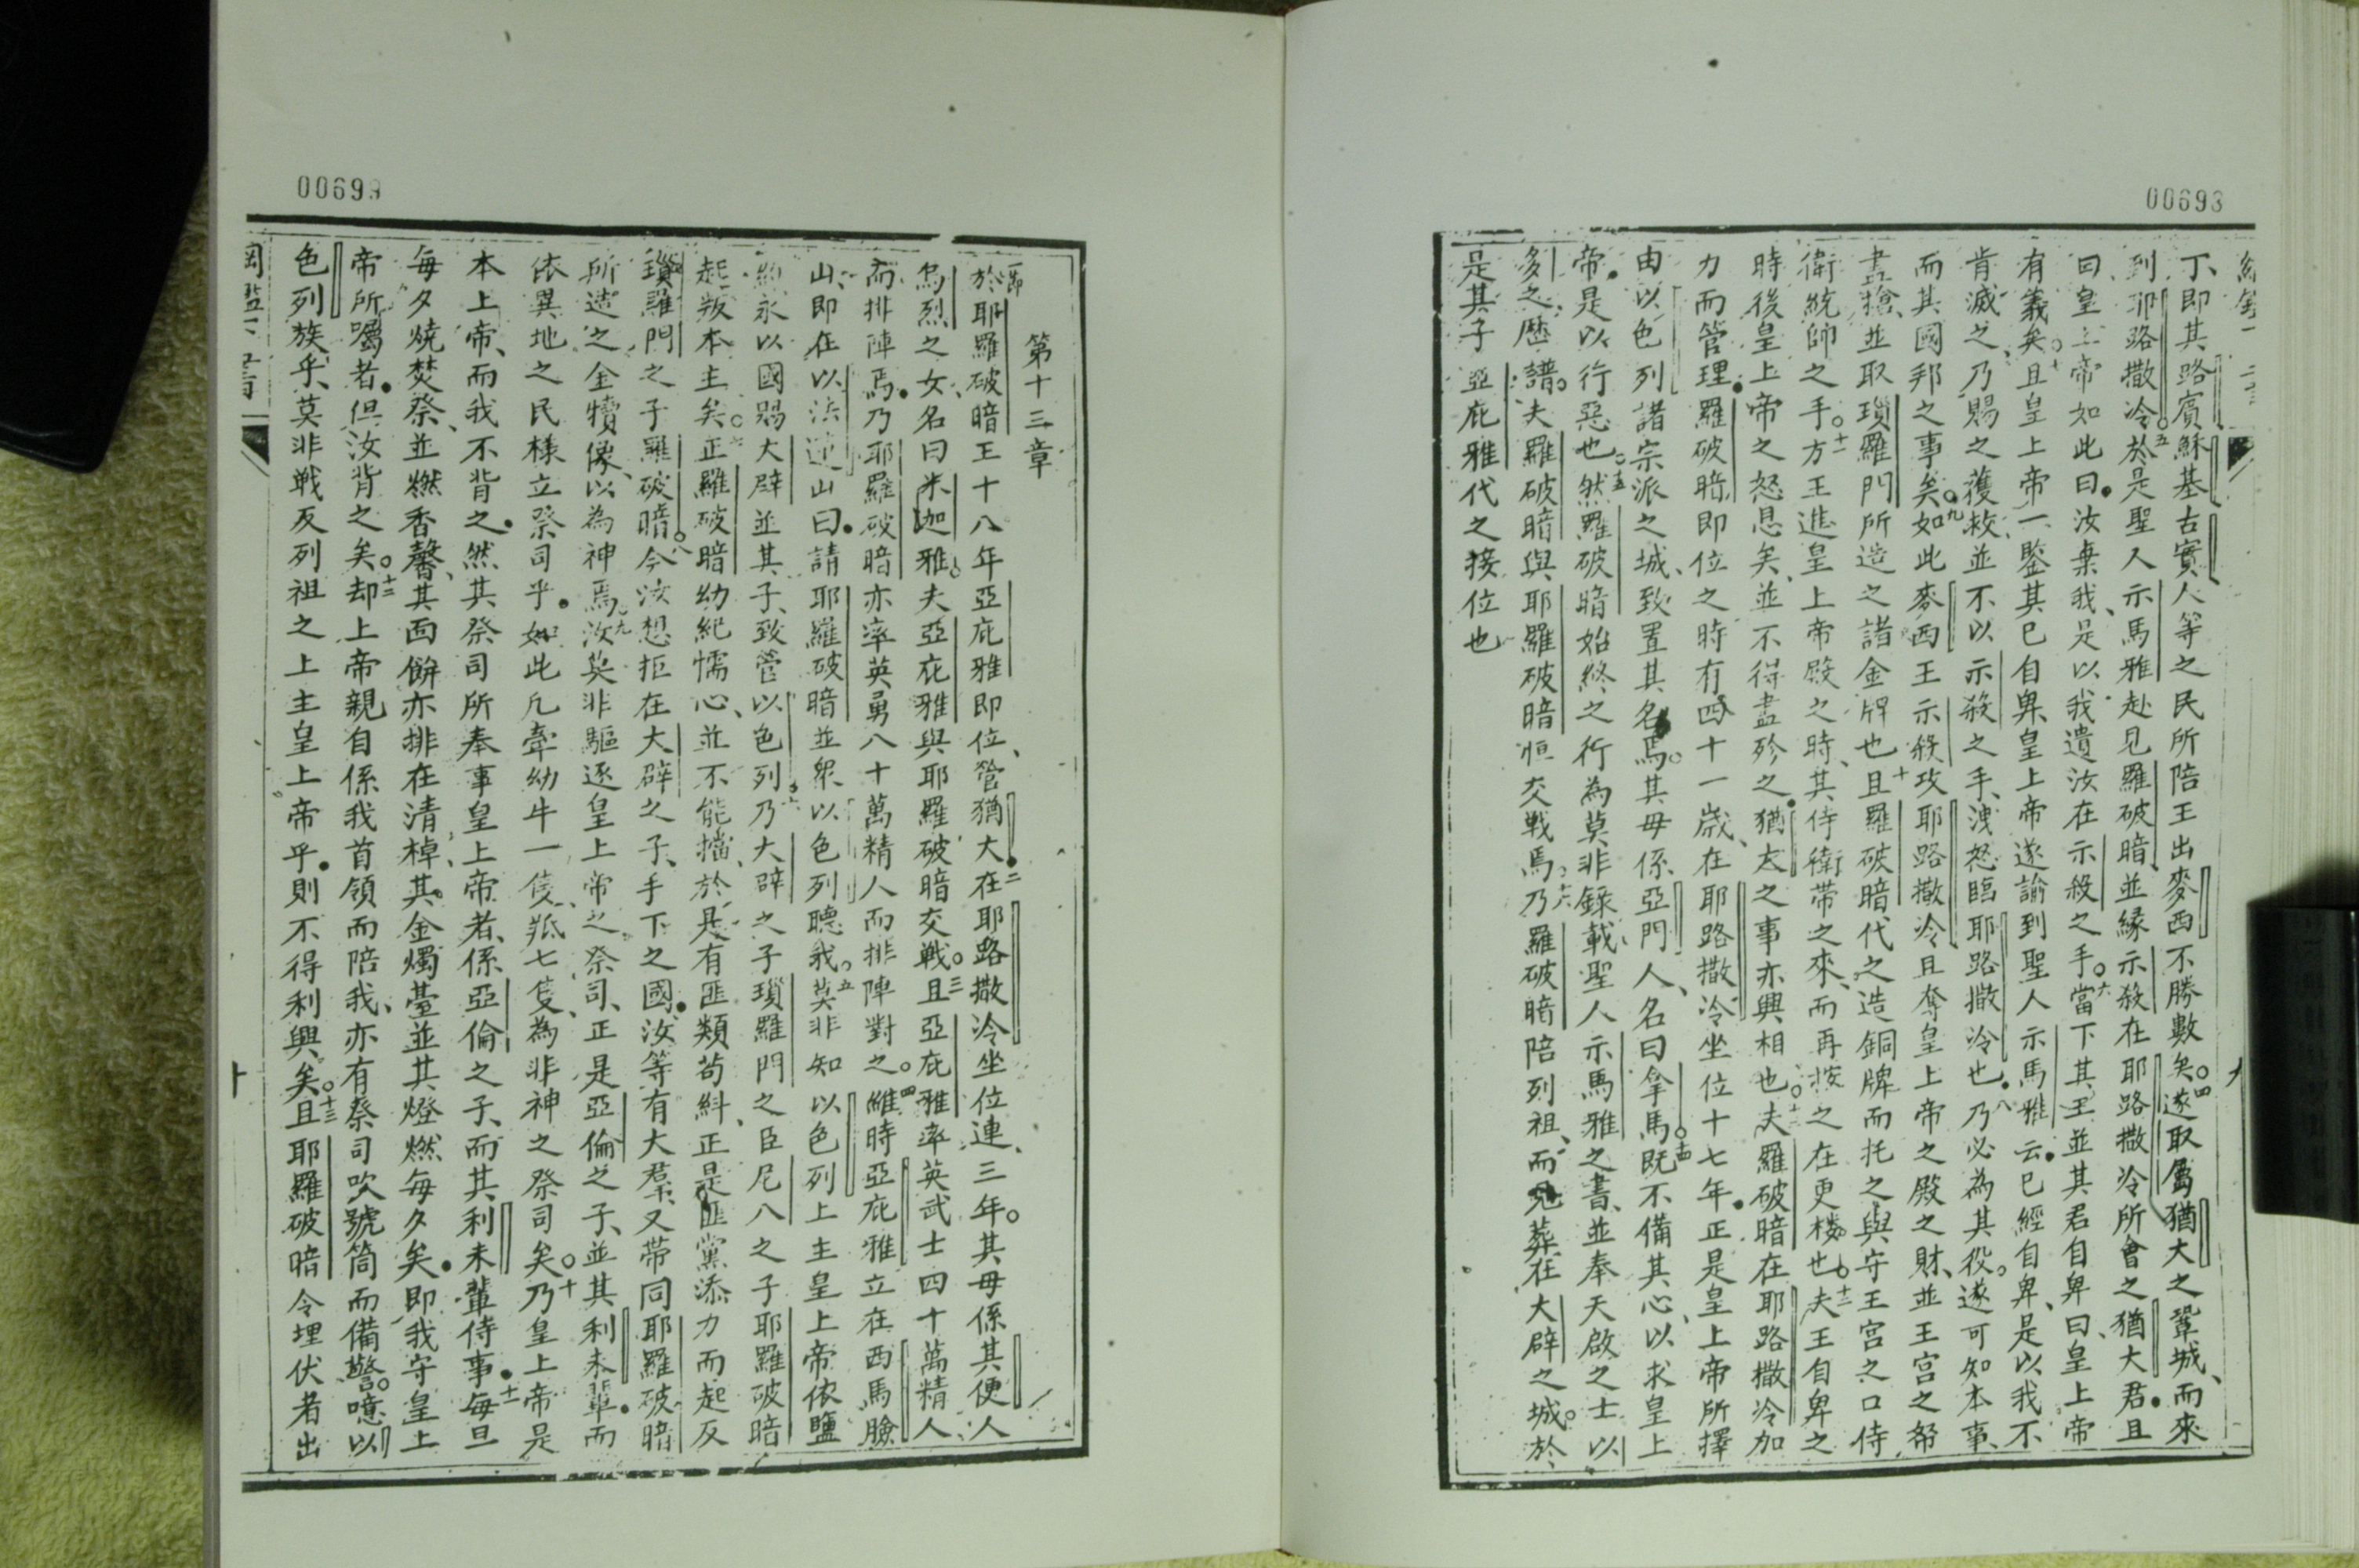 00693
丁、即其路賓穌基古實人等之民所陪王出麥西不勝數矣。四遂取屬猶大之鞏城、而來
到耶路撒冷。五於是聖人示馬雅赴見羅破暗、並緣示殺在耶路撒冷所會之猶大君。且
曰、皇上帝如此曰。汝棄我、是以我遺汝在示殺之手。六當下其王並其君自卑曰、皇上帝
有義矣。七且皇上帝一鑒其已自卑、皇上帝遂諭到聖人示馬雅云。已經自卑、是以我不
肯滅之、乃賜之獲救、並不以示殺之手、洩怒臨耶路撒冷也。八乃必為其役。遂可知本事、
而其國邦之事矣。九如此麥西王示殺攻耶路撒冷、且奪皇上帝之殿之財、並王宮之帑
盡搶、並取瑣羅門所造之諸金牌也。十且羅破暗代之造銅牌而托之與守王宮之口侍
衛統帥之手。十一方王進皇上帝殿之時、其侍衛帶之來、而再按之在更楼也。十二夫王自卑之
時後皇上帝之怒息矣、並不得盡殄之。猶大之事亦興相也。十三夫羅破暗在耶路撒冷加
力而管理。羅破暗即位之時有四十一歲、在耶路撒冷坐位十七年。正是皇上帝所擇
由以色列諸宗派之城、致置其名焉。其母係亞門人、名曰拿馬。十四既不備其心、以求皇上
帝。是以行惡也。十五然羅破暗始終之行為莫非錄載、聖人示馬雅之書、並奉天啟之士以
多之歷譜。夫羅破暗與耶羅破暗恒交戦焉。十六乃羅破暗陪列祖、而見葬在大辟之城。於
是其子亞庇雅代之接位也
九
00699
第十三章
一節於耶羅破暗王十八年亞庇雅即位、管猶大。二在耶路撒冷坐位連三年。其母係其便人
烏烈之女、名曰米迦雅。夫亞庇雅與耶羅破暗交戦。三且亞庇雅率英武士四十萬精人
而排陣焉。乃耶羅破暗亦率英勇八十萬精人而排陣對之。四維時亞庇雅立在西馬臉
山、即在以法蓮山曰。請耶羅破暗並眾以色列聽我。五莫非知以色列上主皇上帝依鹽
約永以國賜大辟並其子、致管以色列。六乃大辟之子瑣羅門之臣尼八之子耶羅破暗
起叛本主矣。七正羅破暗幼紀懦心、並不能擋、於是有匪類苟糾、正是匪黨添力而起反
瑣羅門之子羅破暗。八今汝想拒在大辟之子、手下之國。汝等有大羣、又帶同耶羅破暗
所造之金犢像、以為神焉。九汝莫非驅逐皇上帝之祭司、正是亞倫之子、並其利未輩。而
依異地之民樣立祭司乎。如此凡牽幼牛一隻、羝七隻、為非神之祭司矣。十乃皇上帝是
本上帝、而我不背之。然其祭司所奉事皇上帝者、係亞倫之子、而其利未輩侍事。十一每旦
每夕燒焚祭、並燃香馨、其面餅亦排在清棹、其金燭臺並其燈燃每夕矣。即我守皇上
帝所囑者。但汝背之矣。十二却上帝親自係我首領而陪我、亦有祭司吹號筒而備警。噫以
色列族乎、莫非戦反列祖之上主皇上帝乎。則不得利興矣。十三且耶羅破暗令埋伏者出
十